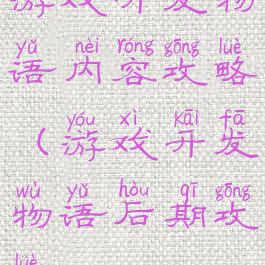 游戏开发物
yǔ nèi róng gōng lüè
语内容攻略
yóu xì kāi fā
（游戏开发
wù yǔ hòu qī gōng
物语后期攻
lüè